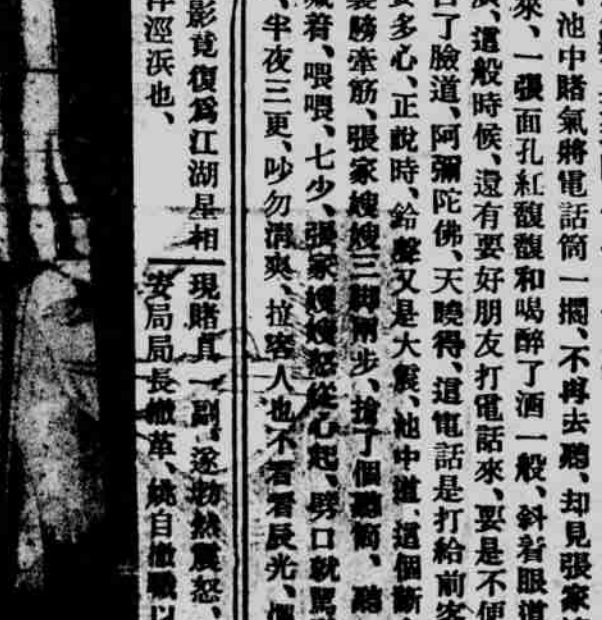 、池中賭氣將電話筒一擱、不再去聽、却見張家
來、一張面孔紅馥馥和喝醉了酒一般、斜着眼道
、這般時候、還有要好朋友打電話來、要是不便
了臉道、阿彌陀佛、天曉得、這電話是打給前客
多心、正說時、鈴聲又是大震、池中道、這個斷
勝牽筋、張家嫂嫂三脚兩步、搶了個聽筒、聽
着、喂喂、七少、張家嫂嫂怒從心起、劈口就罵
、半夜三更、吵勿清爽、拉客人也不看看辰光、
影竟復爲江湖星相
涇浜也、
現賭具一副、遂勃然震怒、
安局局長撤革、姚自撤職以